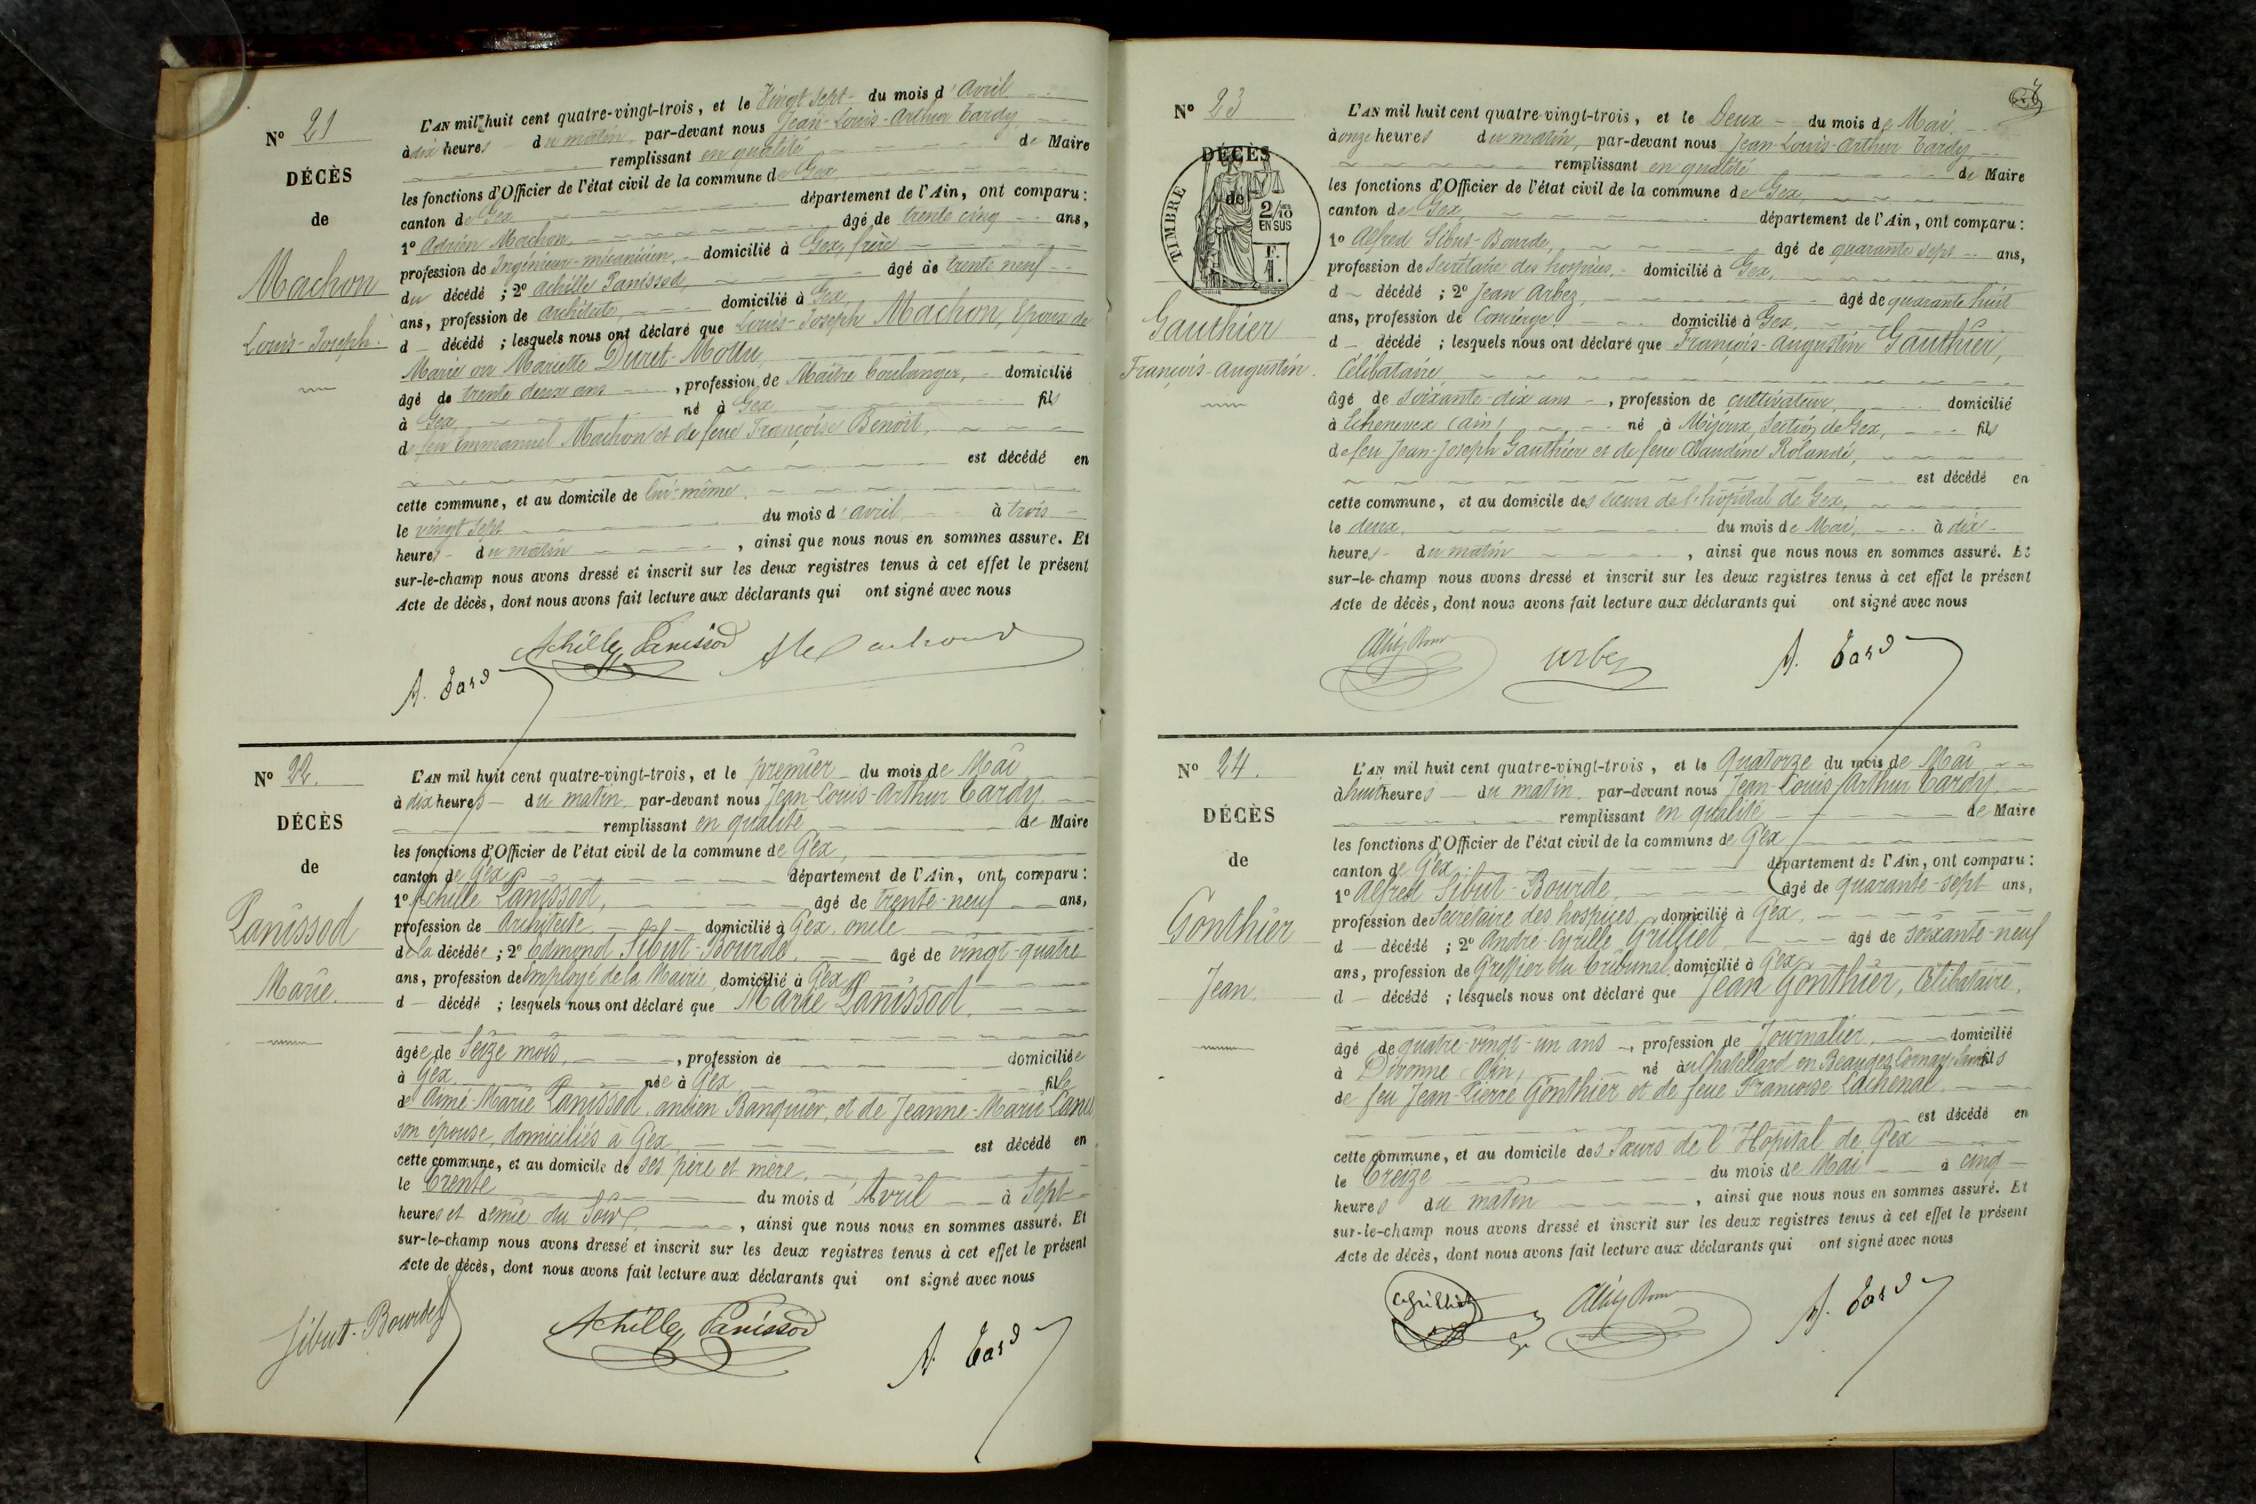 N° 21
DÉCÈS
de
Machon
Louis-Joseph.
L'AN mil huit cent quatre-vingt-trois, et le Vingt sept du mois d'Avril
à dix heures du matin, par-devant nous Jean-Louis-Arthur Tardy,
remplissant en qualité de Maire
les fonctions d'Officier de l'état civil de la commune de Gex,
canton de Gex département de l'Ain, ont comparu :
1° Adrien Machon, âgé de trente cinq ans,
profession de Ingénieur-mécanicien, domicilié à Gex, frère
du décédé ; 2° Achille Panissod, âgé de trente neuf
ans, profession de architecte, domicilié à Gex,
d décédé ; lesquels nous ont déclaré que Louis-Joseph Machon, Epoux de
Marie ou Mariette Duret-Mottu,
âgé de trente deux ans, profession de Maître boulanger, domicilié
à Gex né à Gex fils
de feu Emmanuel Machon et de feue Françoise Benoît,
est décédé en
cette commune, et au domicile de lui-même,
le vingt sept du mois d'avril à trois
heures du matin, ainsi que nous nous en sommes assuré. Et
sur-le-champ nous avons dressé et inscrit sur les deux registres tenus à cet effet le présent
Acte de décès, dont nous avons fait lecture aux déclarants qui ont signé avec nous
Achille Panissod
A. Tardy
N° 22.
DÉCÈS
de
Panissod
Marie.
L'AN mil huit cent quatre-vingt-trois, et le premier du mois de Mai
à dix heures du matin par-devant nous Jean-Louis-Arthur Tardy,
remplissant en qualité de Maire
les fonctions d'Officier de l'état civil de la commune de Gex,
canton de Gex département de l'Ain, ont comparu :
1° Achille Panissod, âgé de trente-neuf ans,
profession de Architecte, domicilié à Gex, oncle
de la décédée ; 2° Edmond Sibut-Bourde, âgé de vingt-quatre
ans, profession de Employé de la Mairie domicilié à Gex
d décédé ; lesquels nous ont déclaré que Marie Panissod,
âgée de Seize mois, profession de domiciliée
à Gex née à Gex fille
de Aimé-Marie Panissod, ancien Banquier, et de Jeanne-Marie
son épouse, domiciliés à Gex est décédé en
cette commune, et au domicile de ses père et mère,
le Trente du mois d'Avril à Sept
heures et demie du Soir, ainsi que nous nous en sommes assuré. Et
sur-le-champ nous avons dressé et inscrit sur les deux registres tenus à cet effet le présent
Acte de décès, dont nous avons fait lecture aux déclarants qui ont signé avec nous
Sibut-Bourde
Achille Panissod
A. Tardy
N° 23
DÉCÈS
de
TIMBRE
2/10
EN SUS
Gauthier
François-Augustin.
L'AN mil huit cent quatre-vingt-trois, et le Deux du mois de Mai
à onze heures du matin, par-devant nous Jean-Louis-Arthur Tardy,
remplissant en qualité de Maire
les fonctions d'Officier de l'état civil de la commune de Gex,
canton de Gex, département de l'Ain, ont comparu :
1° Alfred Sibut-Bourde, âgé de quarante sept ans,
profession de Secrétaire des hospices, domicilié à Gex,
d décédé ; 2° Jean Arbez, âgé de quarante huit
ans, profession de Concierge, domicilié à Gex,
d décédé ; lesquels nous ont déclaré que François-Augustin Gauthier,
Célibataire,
âgé de soixante-dix ans, profession de cultivateur, domicilié
à Echenevex (ain) né à Mijoux, Section de Gex, fils
de feu Jean-Joseph Gauthier et de feue Claudine Rolandé,
est décédé en
cette commune, et au domicile des sœurs de l'hôpital de Gex,
le deux, du mois de Mai, à dix
heures du matin, ainsi que nous nous en sommes assuré. Et
sur-le-champ nous avons dressé et inscrit sur les deux registres tenus à cet effet le présent
Acte de décès, dont nous avons fait lecture aux déclarants qui ont signé avec nous
Arbez
A. Tardy
N° 24.
DÉCÈS
de
Gonthier
Jean.
L'AN mil huit cent quatre-vingt-trois, et le Quatorze du mois de Mai
à huit heures du matin par-devant nous Jean-Louis Arthur Tardy,
remplissant en qualité de Maire
les fonctions d'Officier de l'état civil de la commune de Gex
canton de Gex département de l'Ain, ont comparu :
1° Alfred Sibut-Bourde, âgé de quarante-sept ans,
profession de Secrétaire des hospices domicilié à Gex,
d décédé ; 2° André Cyrille Grilliet âgé de soixante-neuf
ans, profession de Greffier du Tribunal domicilié à Gex
d décédé ; lesquels nous ont déclaré que Jean Gonthier, Célibataire,
âgé de quatre-vingt-un ans, profession de Journalier domicilié
à Divonne (Ain) né au Chatellard en Beauges fils
de feu Jean-Pierre Gonthier et de feue Françoise Lachenal
est décédé en
cette commune, et au domicile des Sœurs de l'Hopital de Gex
le Treize du mois de Mai à cinq
heures du matin, ainsi que nous nous en sommes assuré. Et
sur-le-champ nous avons dressé et inscrit sur les deux registres tenus à cet effet le présent
Acte de décès, dont nous avons fait lecture aux déclarants qui ont signé avec nous
A. Tardy